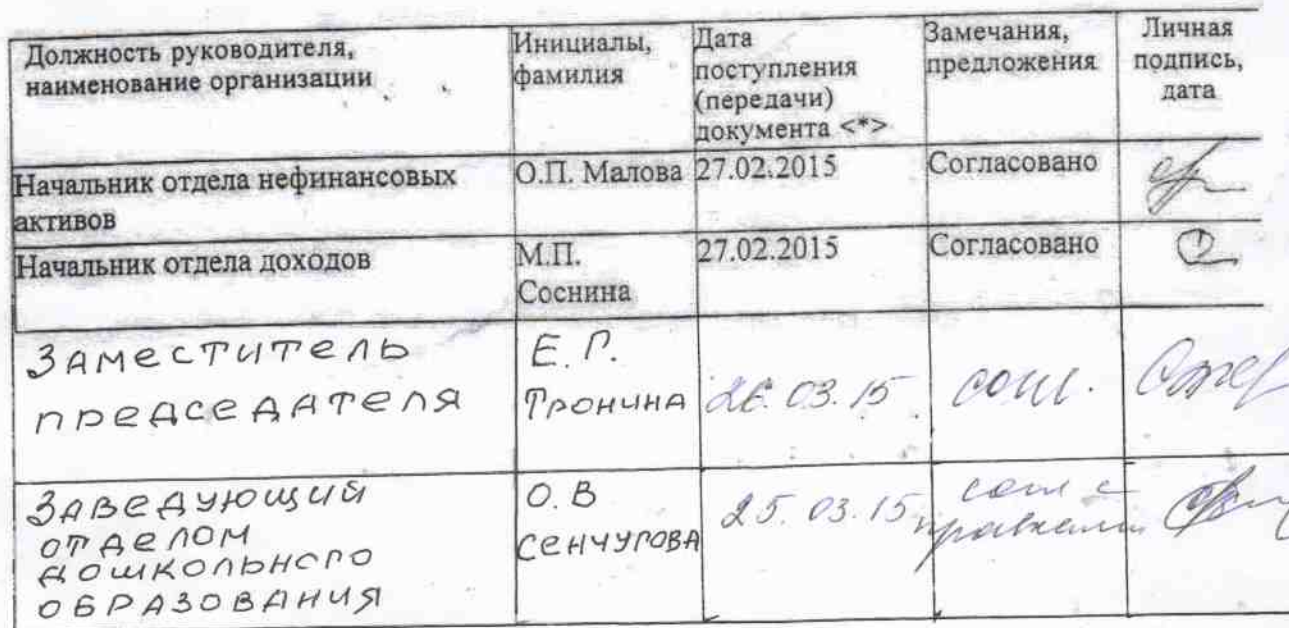 Должность руководителя,
наименование организации
Инициалы,
фамилия
Дата
поступления
(передачи)
документа <*>
Замечания,
предложения
Личная
подпись,
дата
Начальник отдела нефинансовых
активов
О.П. Малова
27.02.2015
Согласовано
Начальник отдела доходов
М.П.
Соснина
27.02.2015
Согласовано
Заместитель
председателя
Е.Г.
Тронина
26.03.15
согл.
Заведующий
отделом
дошкольного
образования
О.В
Сенчугова
25.03.15
согл с
правками